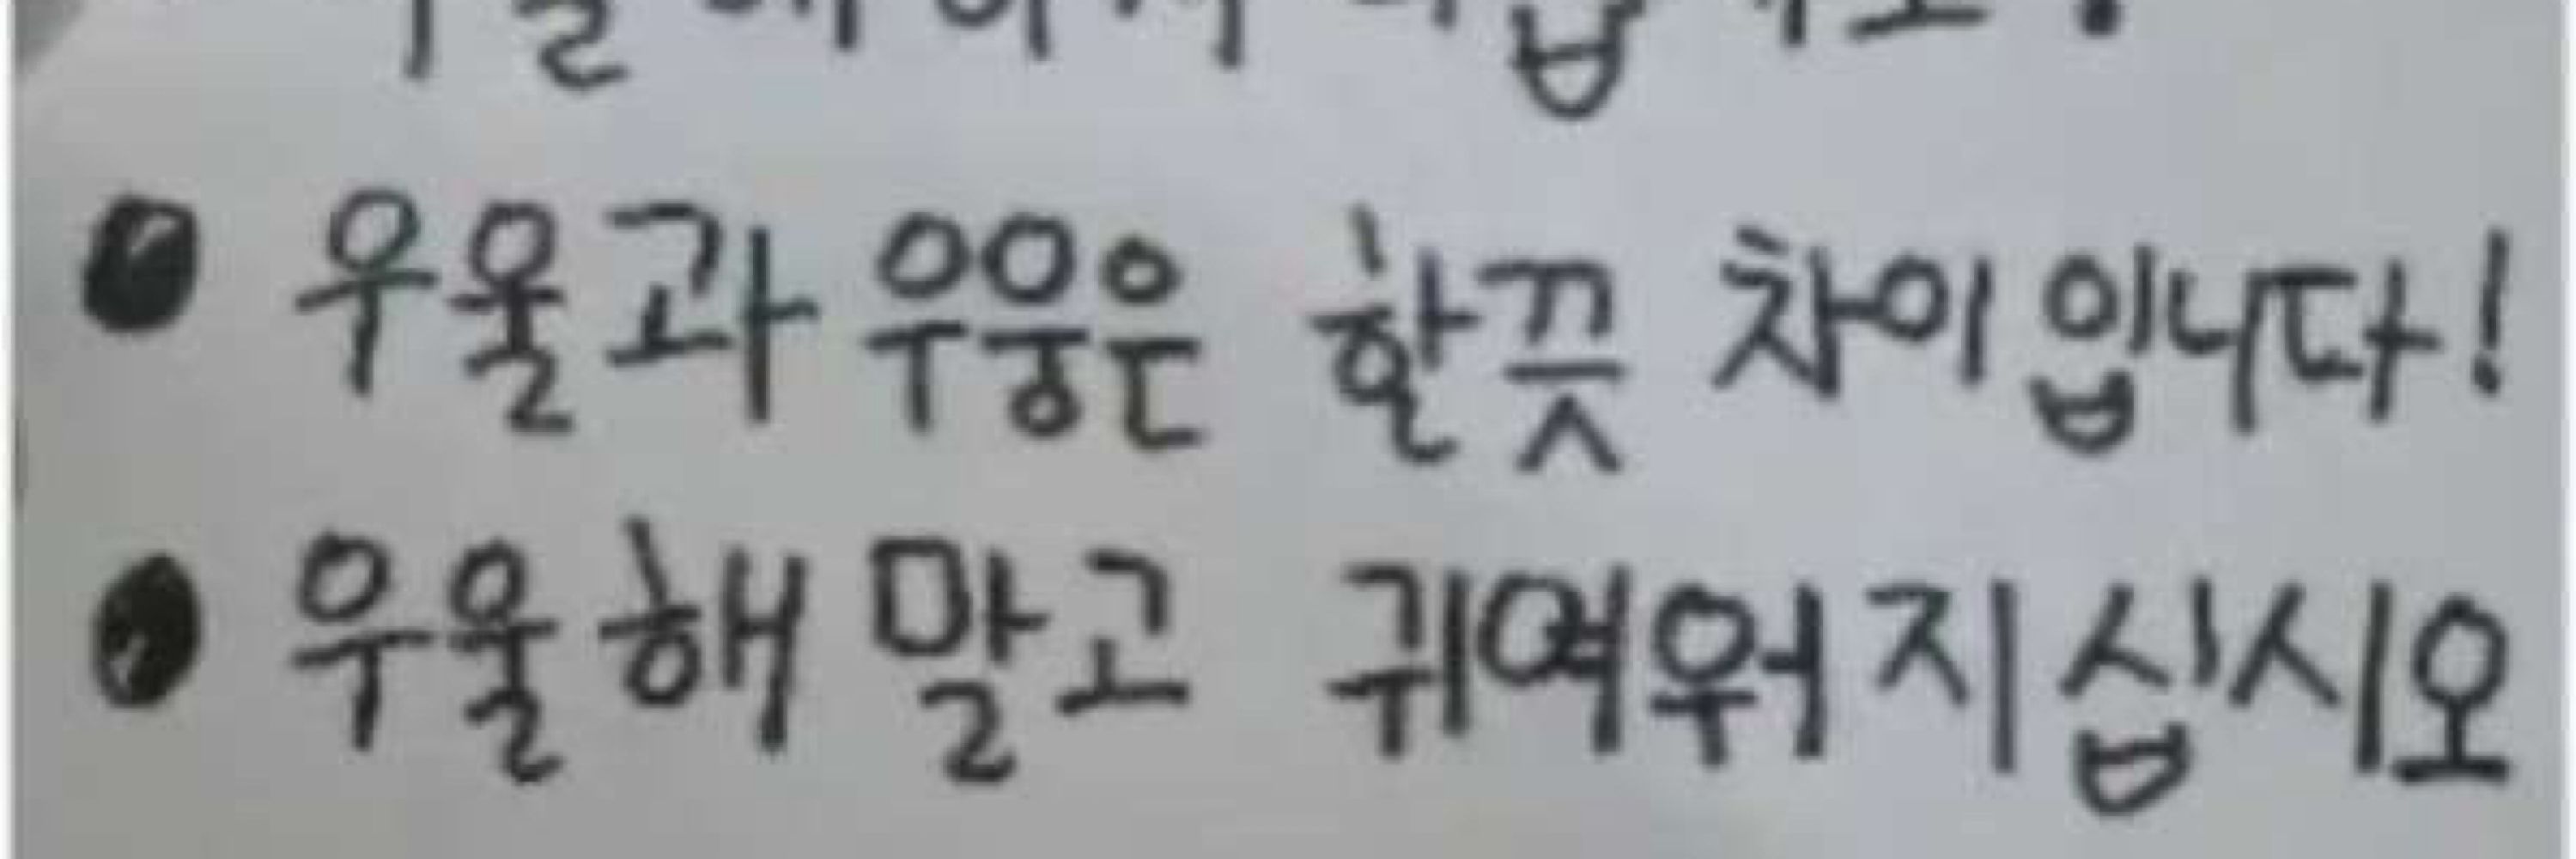 ● 우울과 우웅은 한끗 차이입니다!
● 우울해 말고 귀여워지십시오